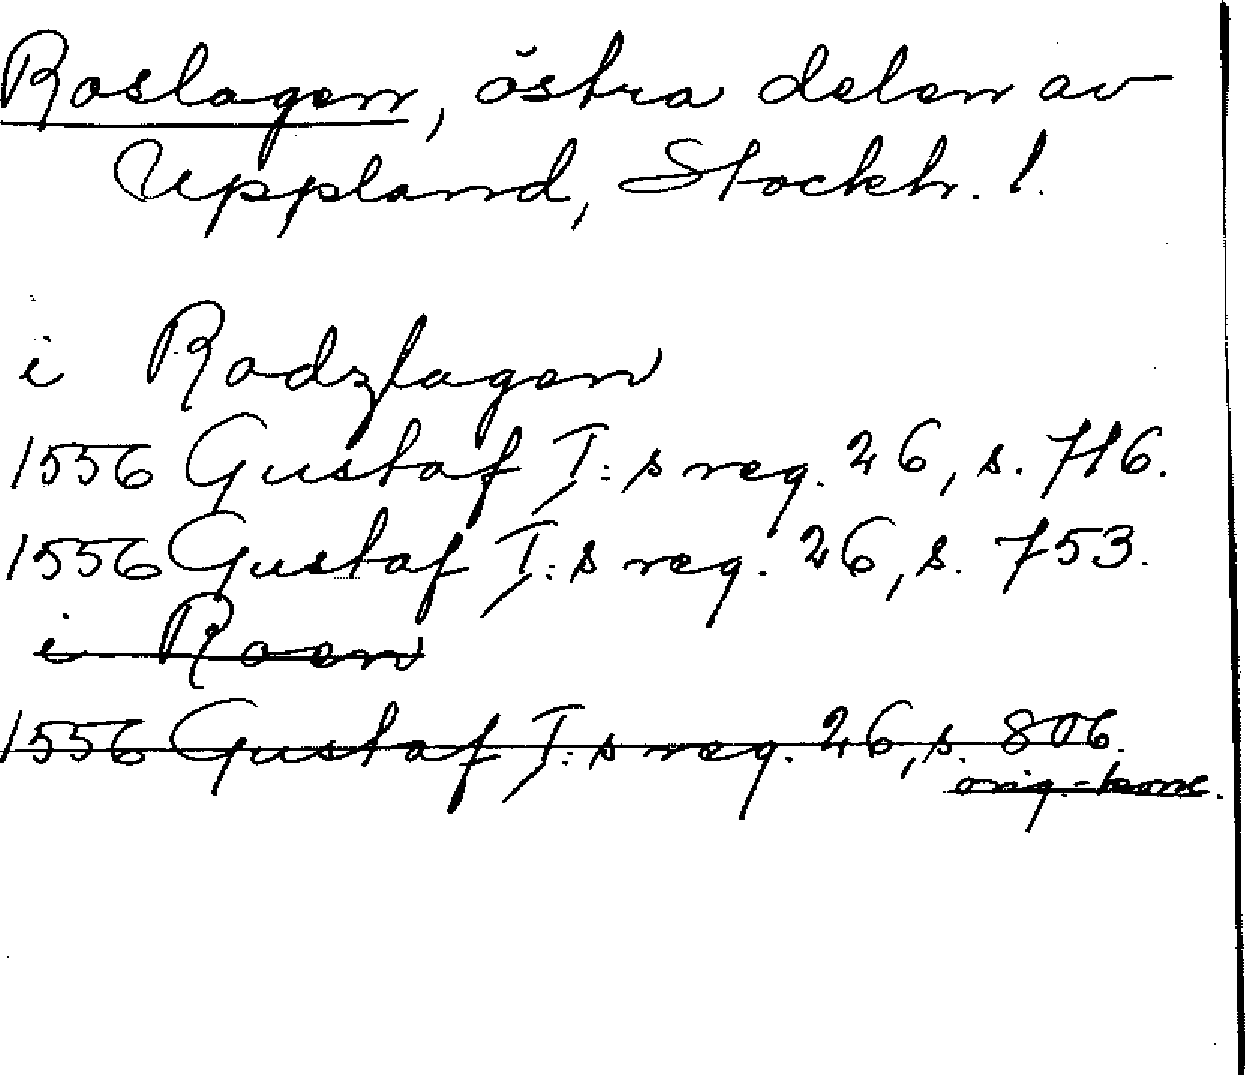 Roslagen, östra delen av
Uppland, Stockh. l.
i Rodzlagen
1556 Gustaf I:s reg. 26, s. 716.
1556 Gustaf I:s reg. 26, s. 753.
i Roen
1556 Gustaf I:s reg. 26, s. 806.
orig.-konc.